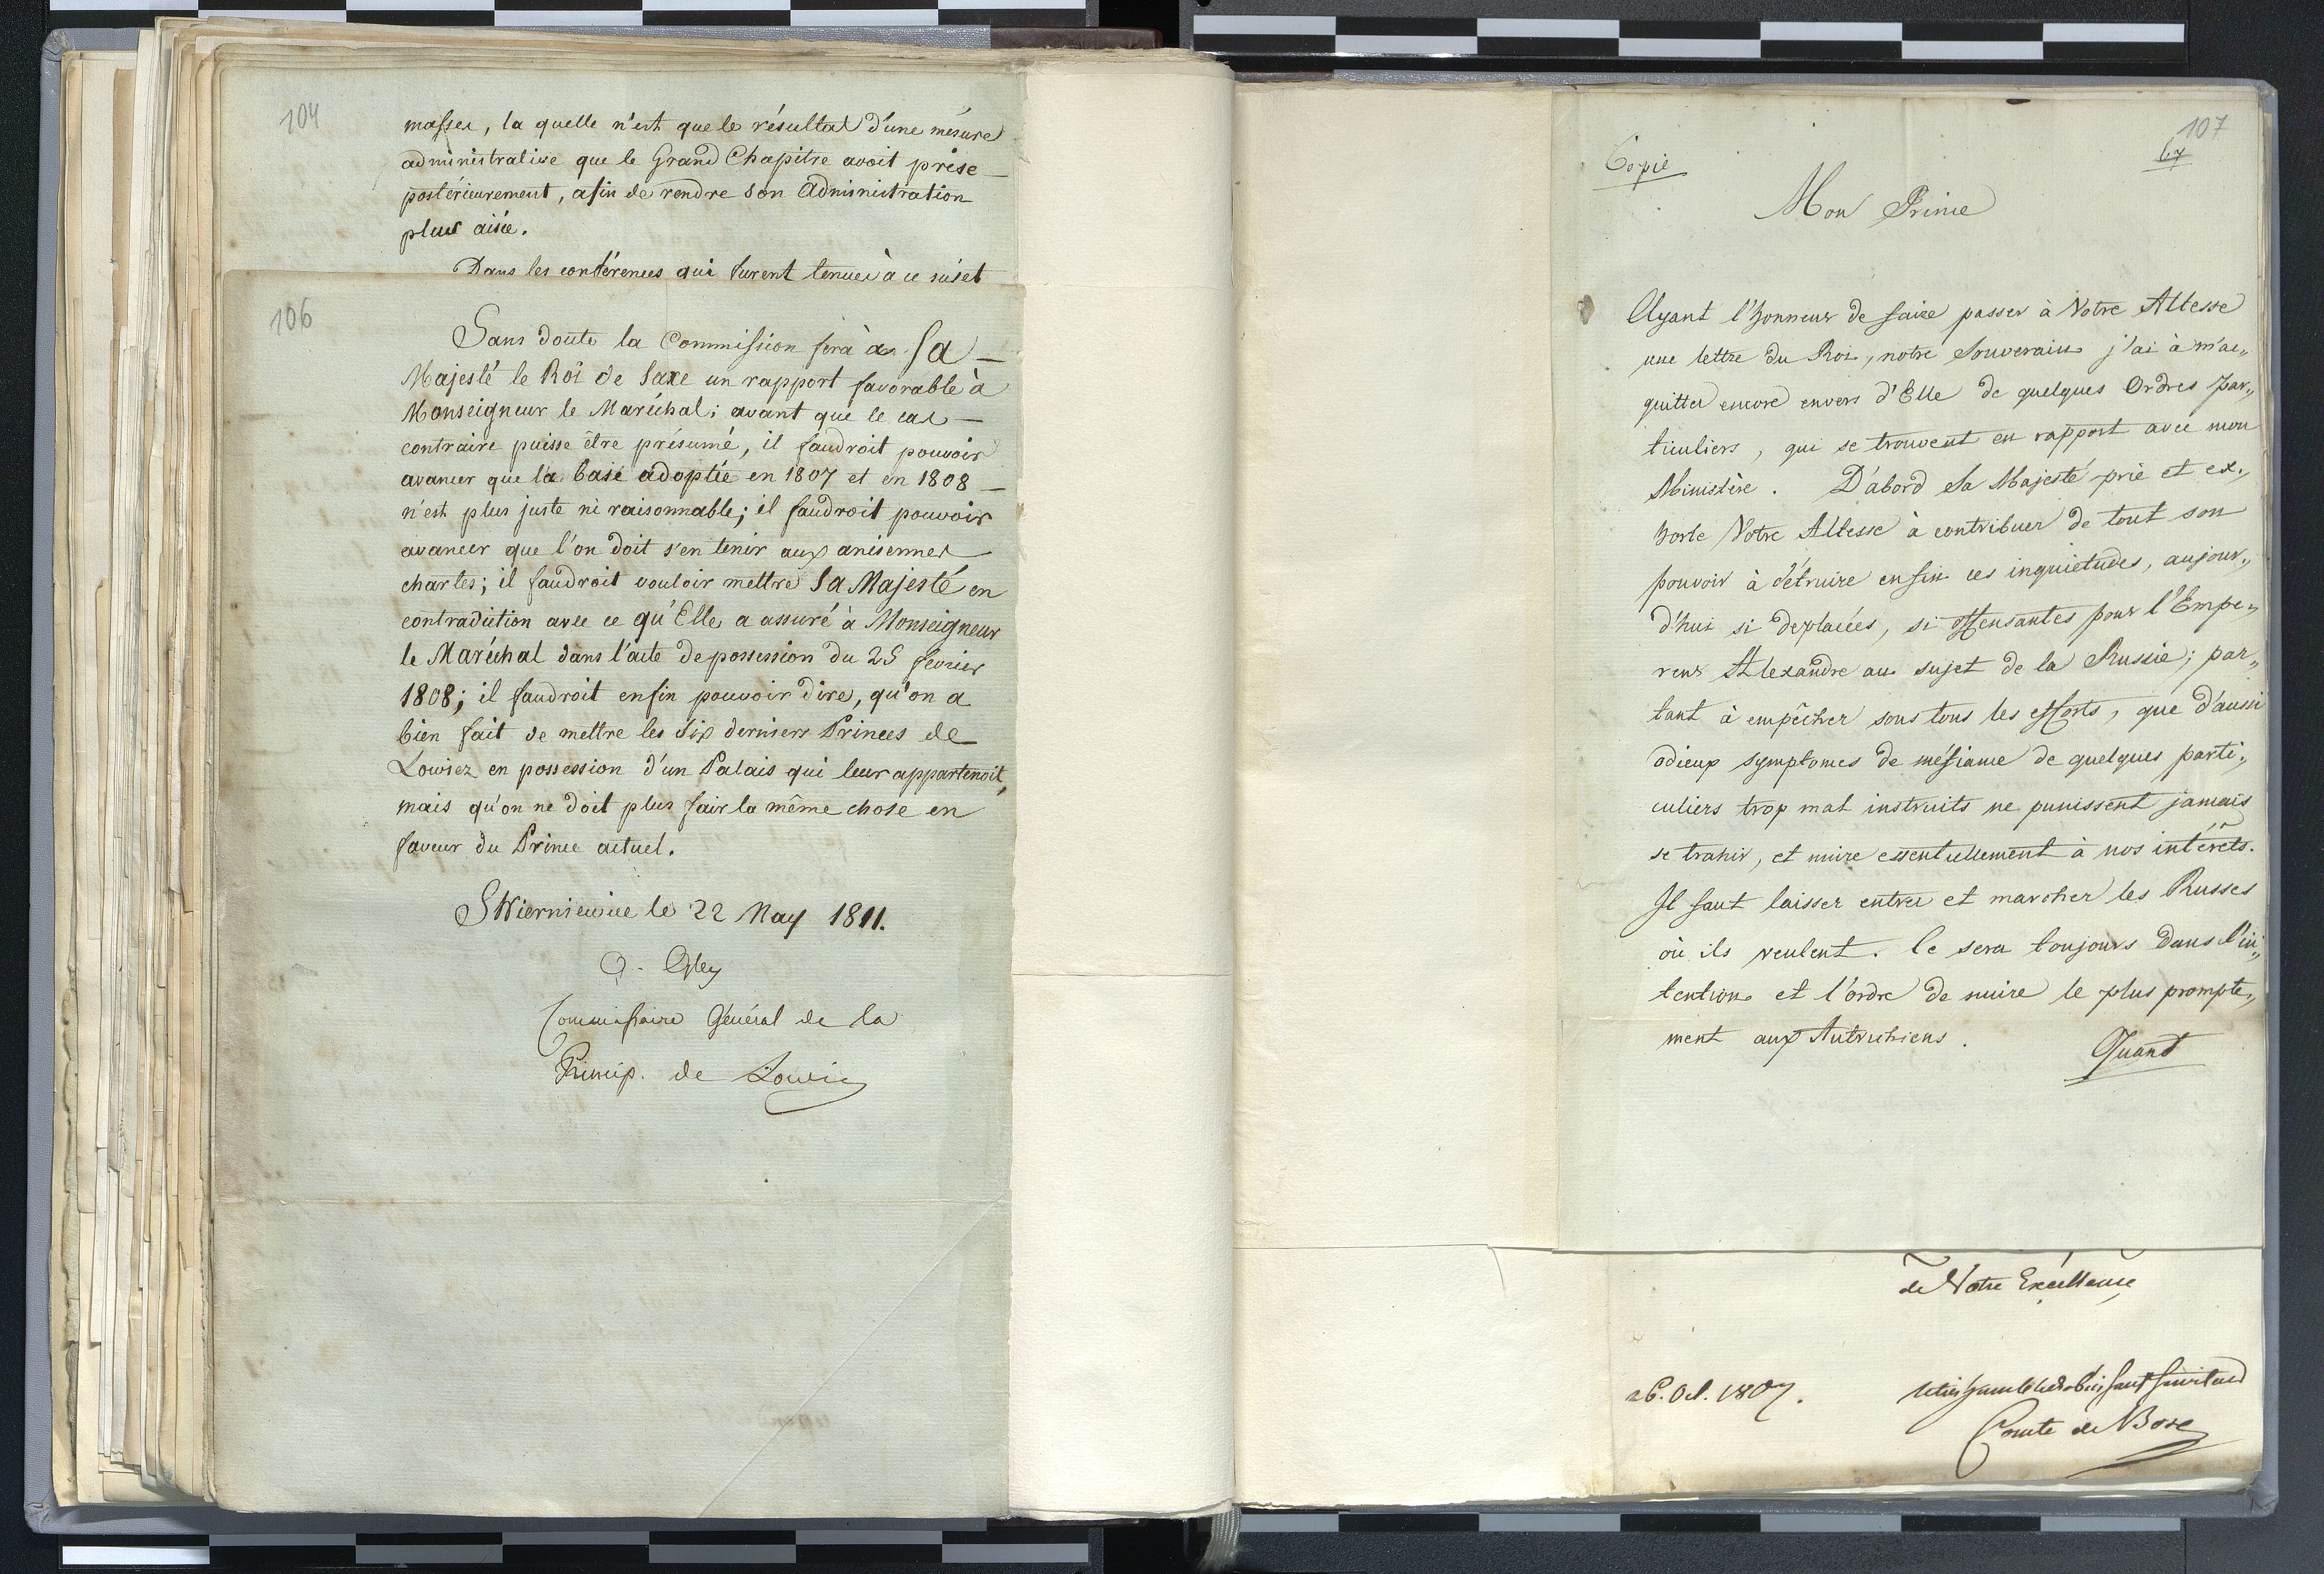 104
masses, la quelle n'est que le résultat d'une mésure
administrative que le Grand Chapitre avoit prise
postérieurement, afin de rendre son administration
plus aisée.
Dans les conférences qui furent tenues à ce sujet
106
Sans doute la Commission fera à Sa
Majesté le Roi de Saxe un rapport favorable à
Monseigneur le Maréchal; avant que le cas
contraire puisse être présumé, il faudroit pouvoir
avancer que la base adoptée en 1807 et en 1808
n'est plus juste ni raisonnable; il faudroit pouvoir
avancer que l'on doit s'en tenir aux anciennes
chartes; il faudroit vouloir mettre Sa Majesté en
contradiction avec ce qu'Elle a assuré à Monseigneur
le Maréchal dans l'acte de possession du 25 fevrier
1808; il faudroit enfin pouvoir dire, qu'on a
bien fait de mettre les six derniers Princes de
Lowicz en possession d'un Palais qui leur appartenoit,
mais qu'on ne doit plus fair la même chose en
faveur du Prince actuel.
Skierniewice le 22 May 1811.
Gley
Commissaire Général de la
Princip. de Lowicz
107
67
Copie
Mon Prince
Ayant l'honneur de faire passer à Votre Altesse
une lettre du Roi, notre Souverain j'ai à m'ac„
quitter encore envers d'Elle de quelques Ordres par„
ticuliers, qui se trouvent en rapport avec mon
Ministère. D'abord Sa Majesté prie et ex„
horte Votre Altesse à contribuer de tout son
pouvoir à détruire enfin ces inquietudes, aujour„
d'hui si deplacées, si offensantes pour l'Empe„
reur Alexandre au sujet de la Russie; par„
tant à empêcher sous tous les efforts, que d'aussi
odieux symptomes de mefiance de quelques parti„
culiers trop mal instruits ne puissent jamais
se trahir, et nuire essentiellement à nos intérêts.
Il faut laisser entrer et marcher les Russes
où ils veulent. Ce sera toujours dans l'in„
tention et l'ordre de nuire le plus prompte„
ment aux Autrichiens.
Quand
de Votre Excellence
26. Oct. 1807.
le très humble et très obéissant serviteur
Comte de Bose